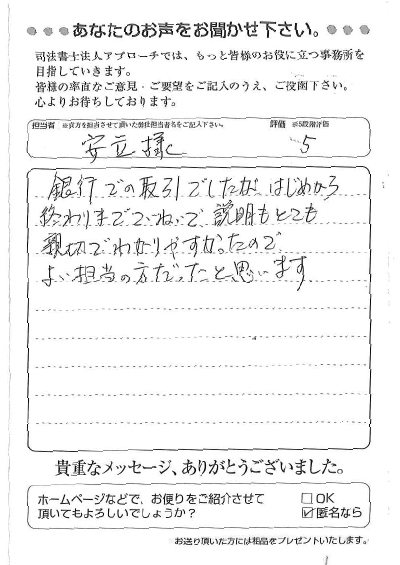 あなたのお声をお聞かせ下さい。
司法書士法人アプローチでは、もっと皆様のお役に立つ事務所を
目指していきます。
皆様の率直なご意見・ご要望をご記入のうえ、ご投函下さい。
心よりお待ちしております。
担当者 ※貴方を担当させて頂いた弊社担当者名をご記入下さい。 評価 ※5段階評価
安立様 5
銀行での取引でしたが、はじめから
終わりまでていねいで説明もとても
親切でわかりやすかったので
よい担当の方だったと思います
貴重なメッセージ、ありがとうございました。
ホームページなどで、お便りをご紹介させて
頂いてもよろしいでしょうか?
□OK
☑匿名なら
お送り頂いた方には粗品をプレゼントいたします。